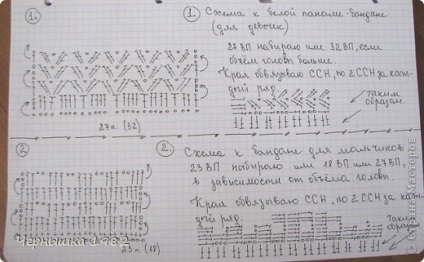 1.
27п. (32)
1. Схема к белой панаме-бандане
(для девочек)
27 ВП набираю или 32 ВП, если
объём головы больше.
Края обвязываю ССН, по 2 ССН за каж-
дый ряд.
таким
образом.
2
23 п (18)
2. Схема к бандане для мальчиков
23 ВП набираю или 18 ВП или 27 ВП,
в зависимости от объёма головы
Края обвязываю ССН, по 2 ССН за каж-
дый ряд.
таким
образом